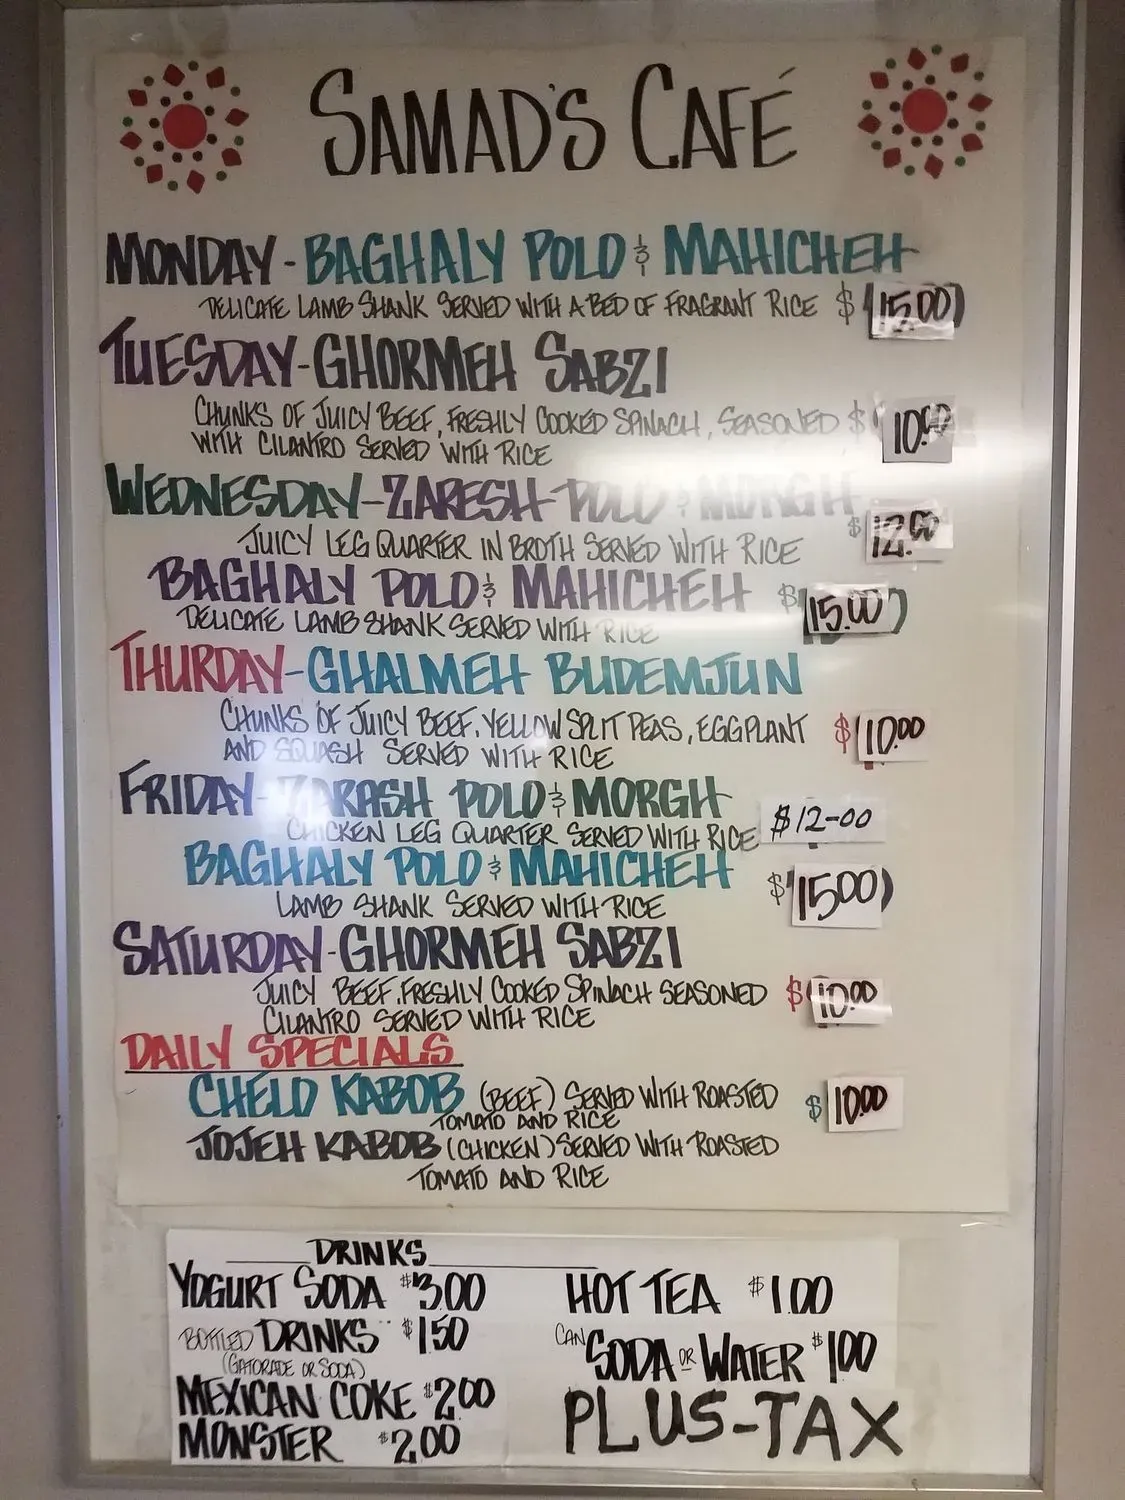 SAMAD'S CAFÉ
MONDAY - BAGHALY POLO & MAHICHEH
DELICATE LAMB SHANK SERVED WITH A BED OF FRAGRANT RICE $ 15.00
TUESDAY - GHORMEH SABZI
CHUNKS OF JUICY BEEF, FRESHLY COOKED SPINACH, SEASONED $ 10.00
WITH CILANTRO SERVED WITH RICE
WEDNESDAY - ZARESH POLO & MORGH
JUICY LEG QUARTER IN BROTH SERVED WITH RICE $ 12.00
BAGHALY POLO & MAHICHEH $ 15.00
DELICATE LAMB SHANK SERVED WITH RICE
THURDAY - GHALMEH BUDEMJUN
CHUNKS OF JUICY BEEF, YELLOW SPLIT PEAS, EGGPLANT $ 10.00
AND SQUASH SERVED WITH RICE
FRIDAY - ZARASH POLO & MORGH
CHICKEN LEG QUARTER SERVED WITH RICE $12-00
BAGHALY POLO & MAHICHEH $ 15.00
LAMB SHANK SERVED WITH RICE
SATURDAY - GHORMEH SABZI
JUICY BEEF, FRESHLY COOKED SPINACH SEASONED $ 10.00
CILANTRO SERVED WITH RICE
DAILY SPECIALS
CHELO KABOB (BEEF) SERVED WITH ROASTED $ 10.00
TOMATO AND RICE
JOJEH KABOB (CHICKEN) SERVED WITH ROASTED
TOMATO AND RICE
DRINKS
YOGURT SODA $3.00
BOTTLED DRINKS $1.50
(GATORADE OR SODA)
MEXICAN COKE $2.00
MONSTER $2.00
HOT TEA $1.00
CAN SODA OR WATER $1.00
PLUS-TAX